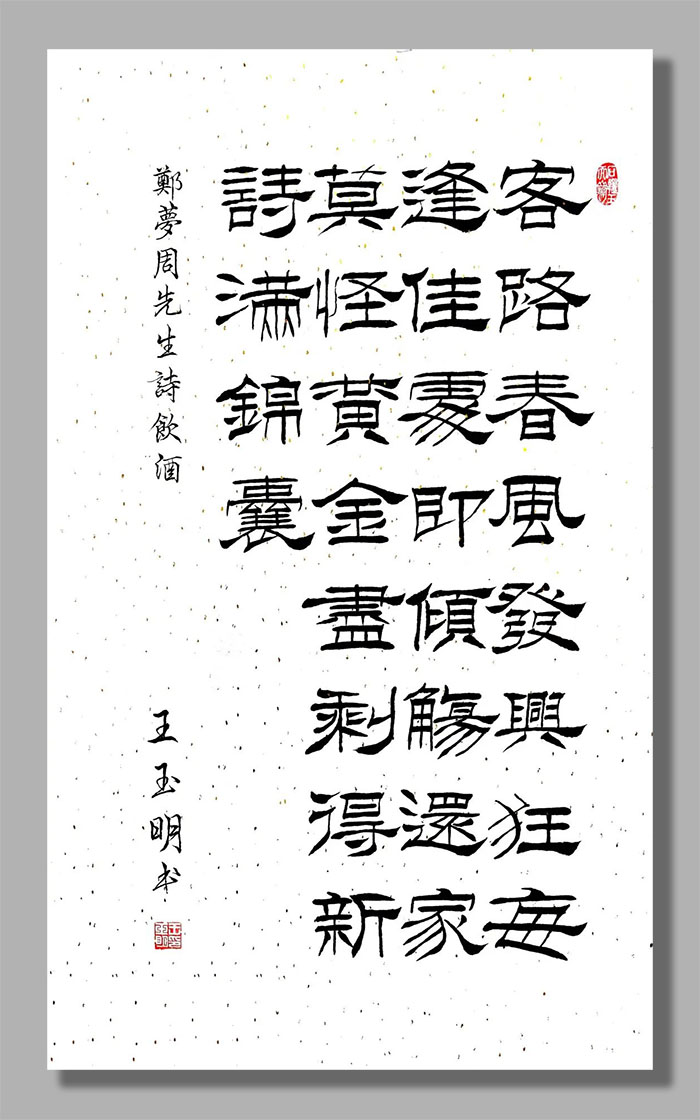 客路春風發興狂每
逢佳處即傾觴還家
莫怪黃金盡剩得新
詩滿錦囊
鄭夢周先生詩飲酒
王玉明书